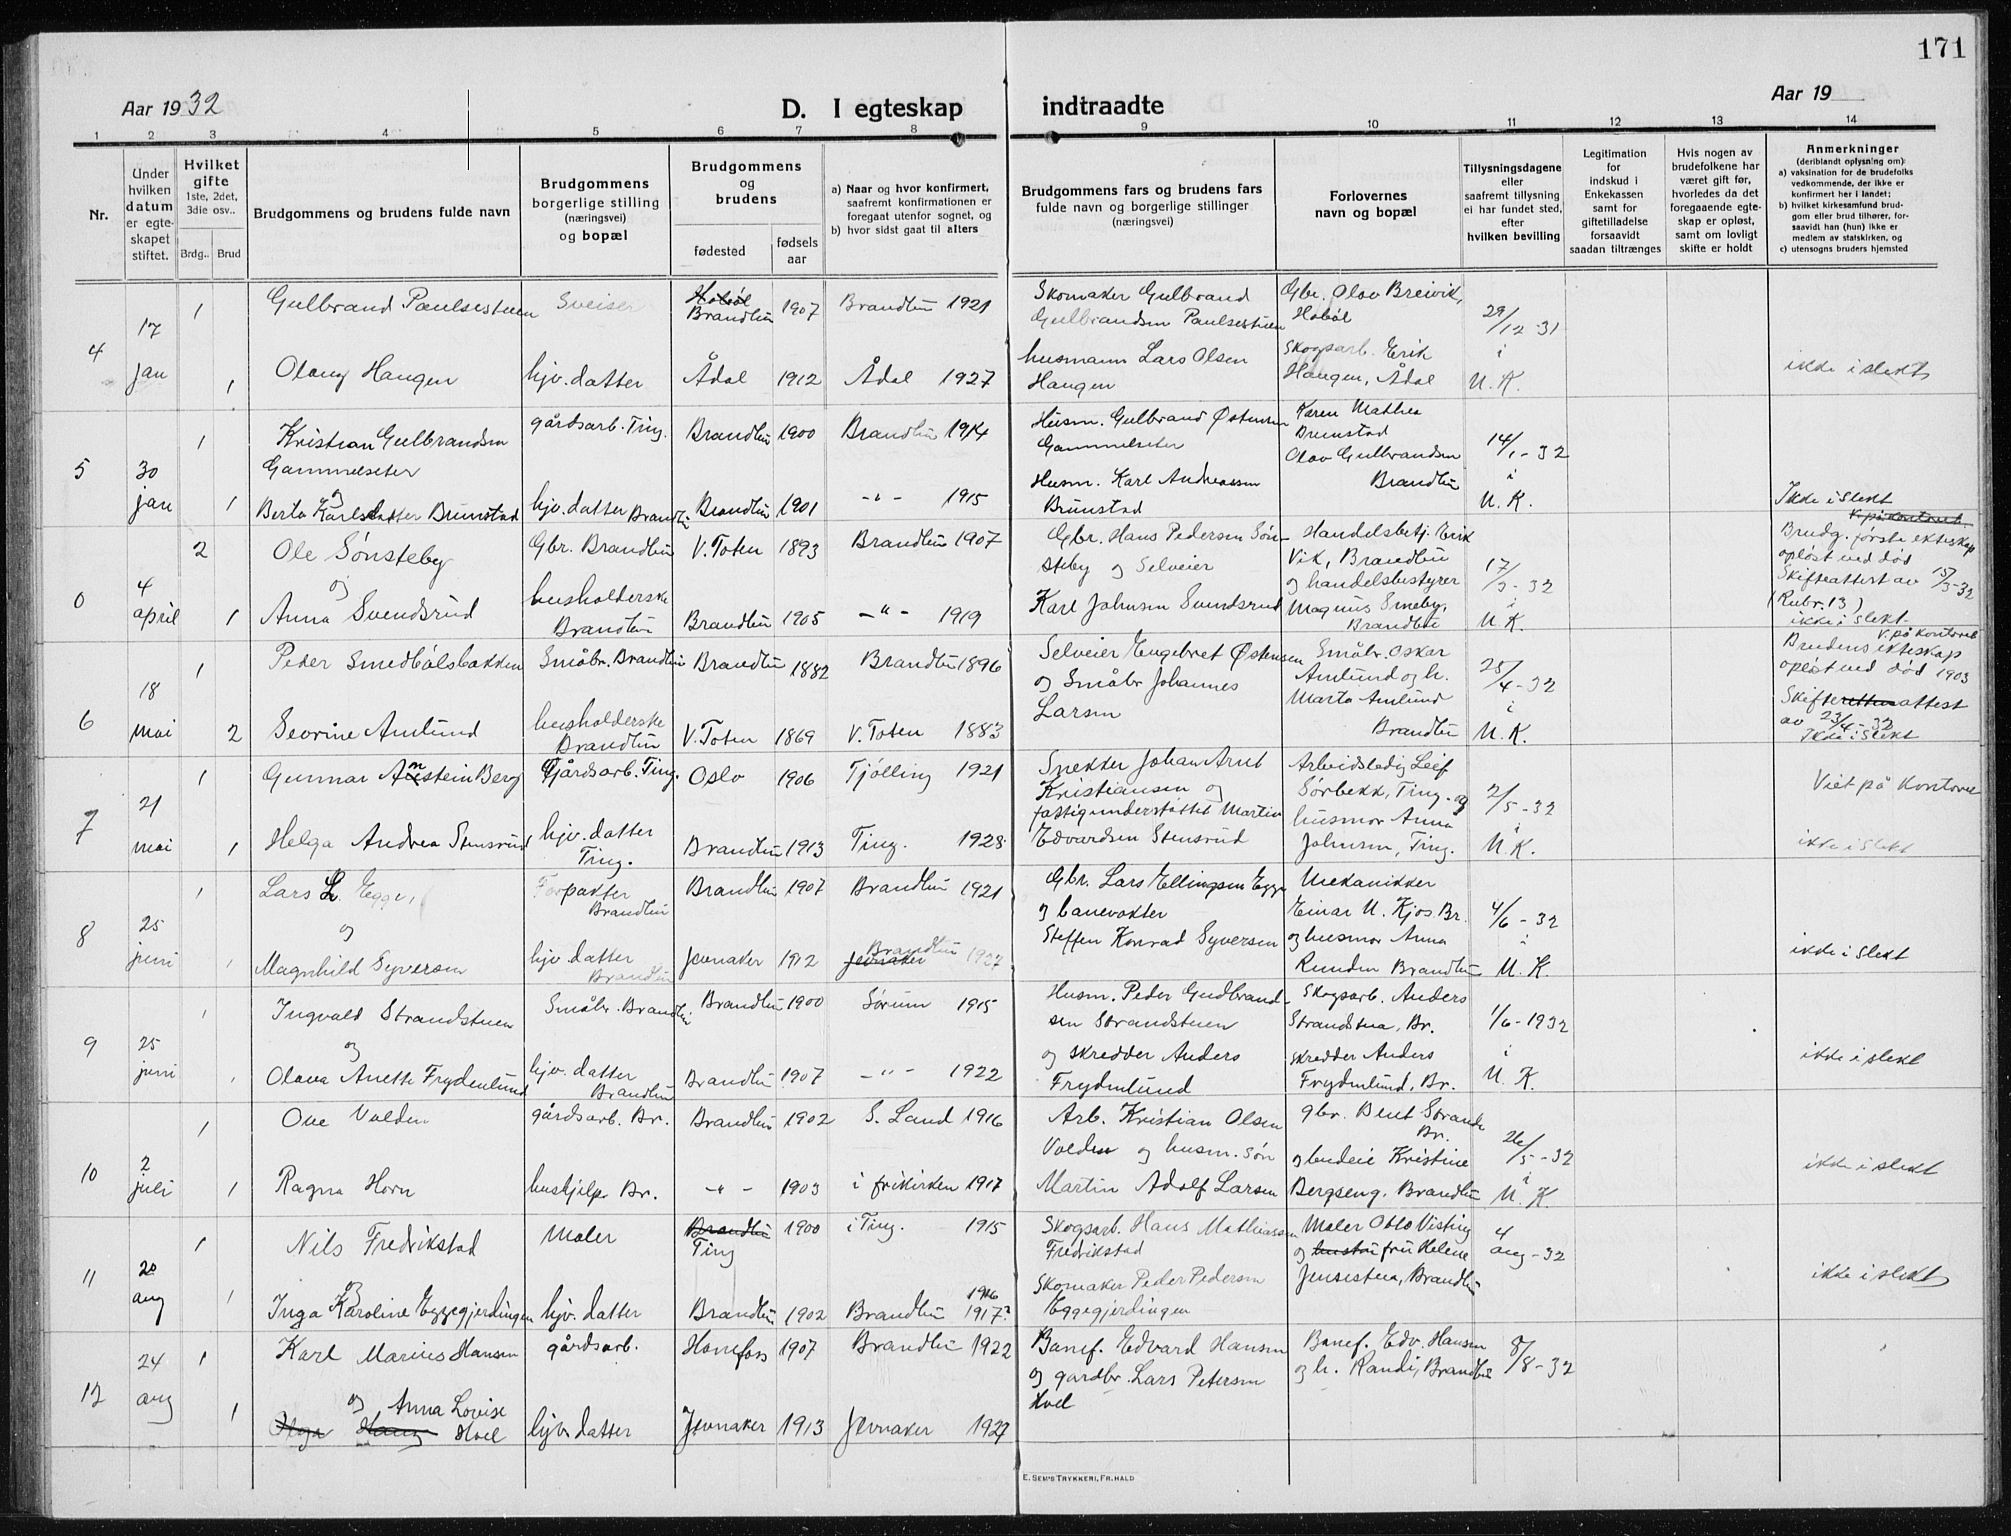 171
Aar 1932
D. I egteskap indtraadte
Aar 19
1 2 3 4 5 6 7 8 9 10 11 12 13 14
Nr.
Under hvilken datum er egteskapet stiftet.
Hvilket gifte
1ste, 2det, 3die osv..
Brdg.. Brud
Brudgommens og brudens fulde navn
Brudgommens borgerlige stilling (næringsvei) og bopæl
Brudgommens og brudens
fødested
fødsels aar
a) Naar og hvor konfirmert, saafremt konfirmationen er foregaat utenfor sognet, og
b) hvor sidst gaat til alters
Brudgommens fars og brudens fars fulde navn og borgerlige stillinger (næringsvei)
Forlovernes navn og bopæl
Tillysningsdagene eller saafremt tillysning ei har fundet sted, efter hvilken bevilling
Legitimation for indskud i Enkekassen samt for giftetilladelse forsaavidt saadan tiltrænges
Hvis nogen av brudefolkene har været gift før, hvorledes da det foregaaende egteskap er opløst, samt om lovligt skifte er holdt
Anmerkninger
(deriblandt oplysning om):
a) vaksination for de brudefolks vedkommende, der ikke er konfirmert her i landet;
b) hvilket kirkesamfund brudgom eller brud tilhører, forsaavidt han (hun) ikke er medlem av statskirken, og
c) utensogns bruders hjemsted
4 17 jan 1 Gulbrand Paulsestuen Sveiser Hobøl Brandbu 1907 Brandbu 1921 Skomaker Gulbrand Gulbrandsen Paulsestuen Gbr. Olav Breivik, Hobøl 29/12-31 i U.K.
1 Olaug Haugen hjv. datter Ådal 1912 Ådal 1927 husmann Lars Olsen Haugen Skogsarb. Erik Haugen, Ådal ikke i slekt
5 30 jan 1 Kristian Gulbrandsen Gammelseter gårdsarb. Ting. Brandbu 1900 Brandbu 1914 Husm. Gulbrand Østensen Gammelseter Karen Mathea Brunstad Olav Gulbrandsen Brandbu 14/1-32 i U.K.
og
1 Berta Karlsdatter Brunstad hjv. datter Brandbu Brandbu 1901 -"- 1915 Husm. Karl Andreassen Brunstad Ikke i slekt V. på kontoret
0 4 april 2 Ole Sønsteby Gbr. Brandbu V. Toten 1893 Brandbu 1907 Gbr. Hans Pedersen Sønsteby og Selveier Handelsbetj. Erik Vik, Brandbu og handelsbestyrer Magnus Smeby, Brandbu 17/3-32 i U.K.
og
1 Anna Svendsrud husholderske Brandbu Brandbu 1905 -"- 1919 Karl Johnsen Svendsrud Brudg. første ekteskap opløst ved død Skifteattest av 15/3-32 (Rubr. 13) ikke i slekt. V. på kontoret
6 18 mai 1 Peder Smedbålsbakken Småbr. Brandbu Brandbu 1882 Brandbu 1896 Selveier Engebret Østensen og Småbr Johannes Larsen Småbr. Oskar Amlund og h. Marta Amlund Brandbu 25/4-32 i U.K.
2 Sevrine Amlund husholderske Brandbu V. Toten 1869 V. Toten 1883 Brudens ekteskap opløst ved død 1903 Skifteattest av 23/4-32 Ikke i slekt
7 21 mai 1 Gunnar Arnstein Berg Gårdsarb. Ting. Oslo 1906 Tjølling 1921 Snekker Johan Arnt Kristiansen og fattigunderstøttet Martin Edvardsen Stensrud Arbeidsledig Leif Sørbekk, Ting. og husmor Anna Johnsen, Ting. 2/5-32 i U.K. Viet på kontoret
1 Helga Andrea Stensrud hjv. datter Ting. Brandbu 1913 Ting. 1928 ikke i slekt
8 25 juni 1 Lars L. Egge, Forpakter Brandbu Brandbu 1907 Brandbu 1921 Gbr. Lars Ellingsen Egge og banevokter Steffen Konrad Syversen Mekanikker Einar M. Kjos. Br. og husmor Anna Runden Brandbu 4/6-32 i U.K.
og
1 Magnhild Syversen hjv. datter Brandbu Jevnaker 1912 Jevnaker Brandbu 1927 ikke i slekt
9 25 juni 1 Ingvald Strandstuen Småbr. Brandbu Brandbu 1900 Sørum 1915 Husm. Peder Gudbrandsen Strandstuen og skredder Anders Frydenlund Skogsarb. Anders Strandstua, Br. skredder Anders Frydenlund, Br. 1/6-1932 i U.K.
og
1 Olava Anette Frydenlund hjv. datter Brandbu Brandbu 1907 -"- 1922 ikke i slekt
10 2 juli 1 Ove Volden gårdsarb. Br. Brandbu 1902 S. Land 1916 Arb. Kristian Olsen Volden og husm. søn Martin Adolf Larsen gbr. Bent Strande Br. og budeie Kristine Bergseng. Brandbu 26/5-32 i U.K.
1 Ragna Horn hushjelp Br. -"- 1903 i frikirken 1917 ikke i slekt
11 20 aug 1 Nils Fredrikstad Maler Brandbu Ting 1900 i Ting. 1915 Skogsarb. Hans Mathiassen Fredrikstad Maler Otto Visting og hustru fru Helene Jensestua, Brandbu 4 aug-32
og
1 Inga Karoline Eggegjerdingen hjv. datter Brandbu 1902 Brandbu 1916 1917? Skomaker Peder Pedersen Eggegjerdingen ikke i slekt
12 24 aug 1 Karl Marius Hansen gårdsarb. Hønefoss 1907 Brandbu 1922 Banef. Edvard Hansen og gardbr. Lars Petersen Hvel Banef. Edv. Hansen og h. Randi, Brandbu 8/8-32
og
1 Anna Lovise Hvel hjv. datter Jevnaker 1913 Jevnaker 1927
E. SEM'S TRYKKERI, FR.HALD